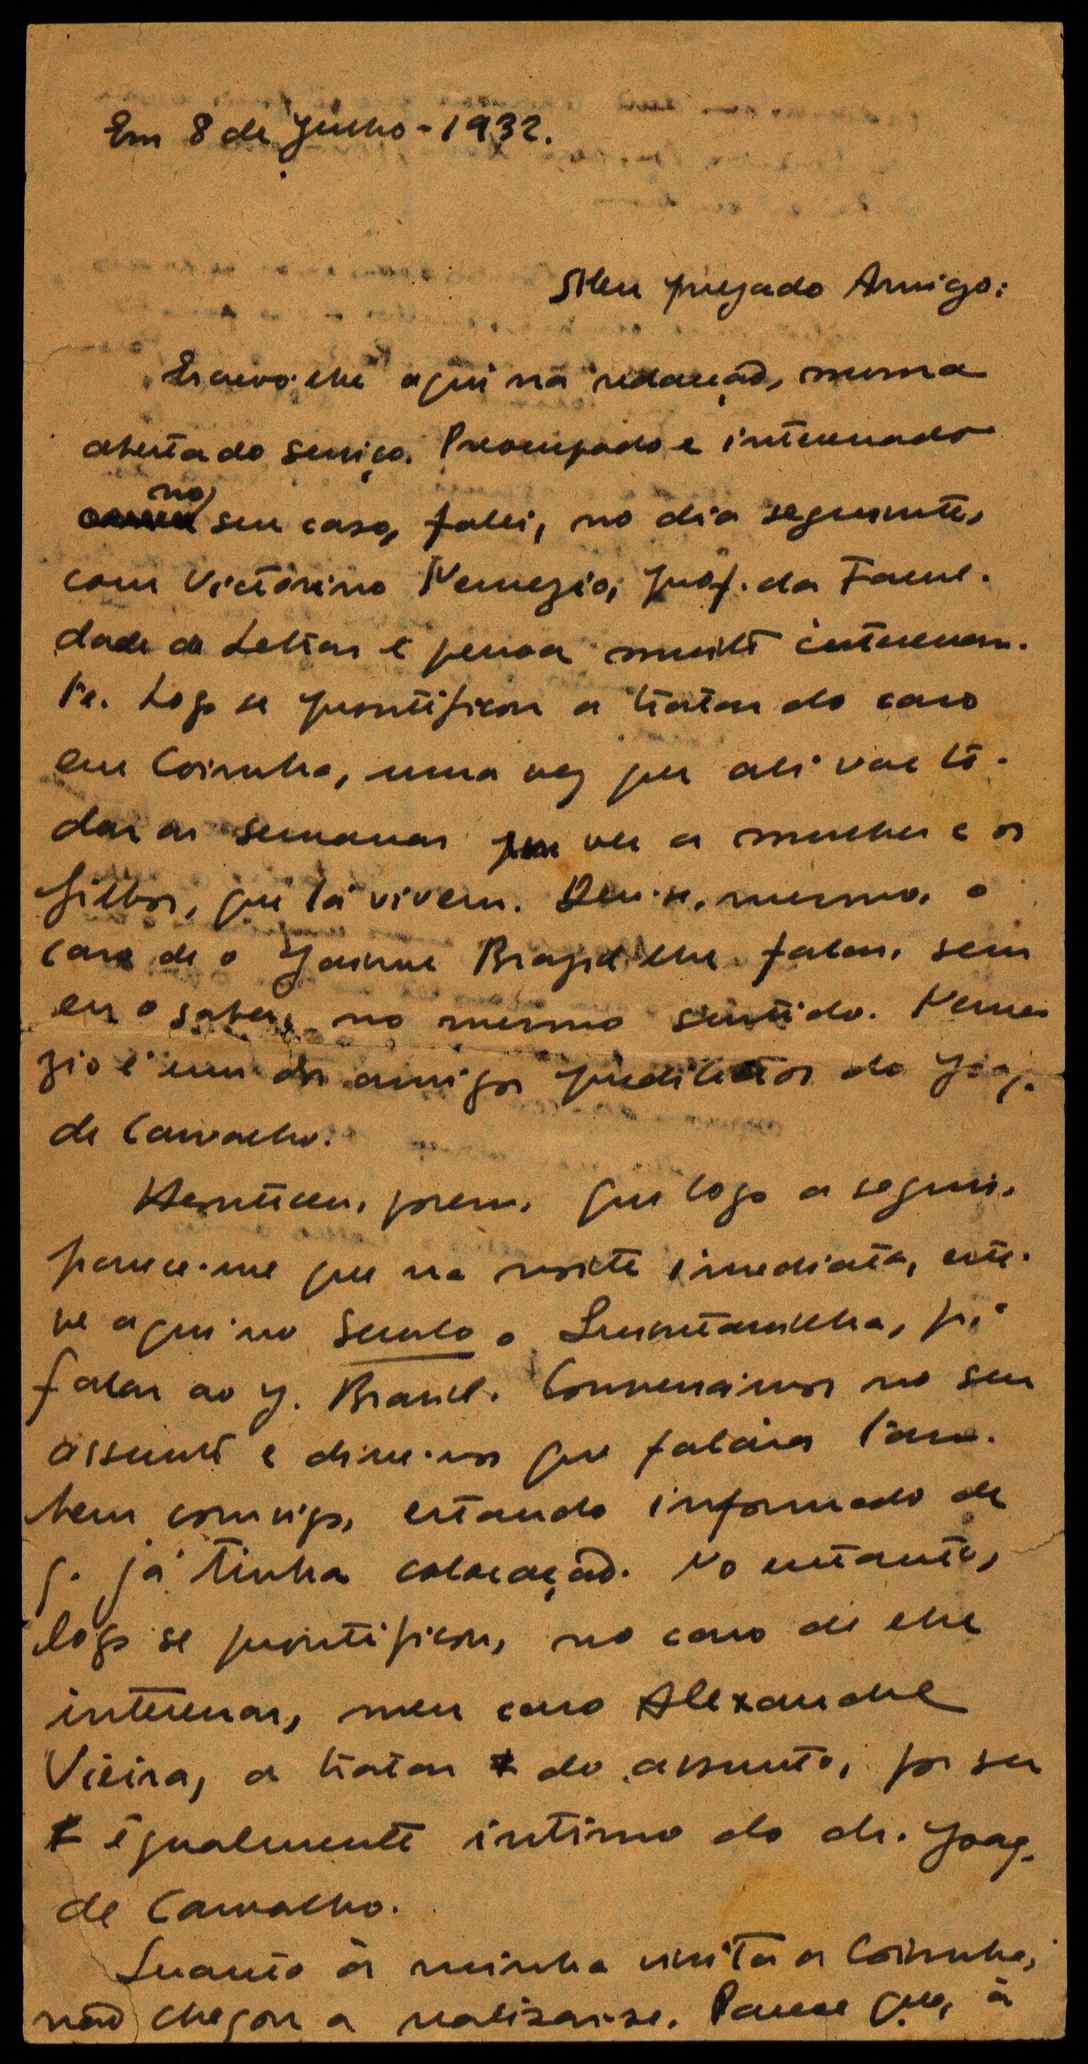 Em 8 de Junho - 1932.
Meu presado Amigo:
Escrevo-lhe aqui na redacção, numa
aberta do serviço. Preocupado e interessado
no seu caso, falei, no dia seguinte,
com Victorino Nemezio, prof. da Facul-
dade de Letras e pessoa muito interessan-
te. Logo se prontificou a tratar do caso
em Coimbra, uma vez que ali vae tô-
das as semanas ver a mulher e os
filhos, que lá vivem. Deu-se, mesmo, o
caso de o Jaime Brazil lhe falar, sem
eu o saber, no mesmo sentido. Neme-
zio é um dos amigos predilectos do Joaq.
de Carvalho.
Aconteceu, porem, que logo a seguir,
parece-me que na noite imediata, este-
ve aqui no Seculo o Quintanilha, p.ª
falar ao J. Brasil. Conversámos no seu
assunto e disse-nos que falára tam-
bem comsigo, estando informado de
q. já tinha colocação. No entanto,
logo se prontificou, no caso de lhe
interessar, meu caro Alexandre
Vieira, a tratar do assunto, por ser
egualmente intimo do dr. Joaq.
de Carvalho.
Quanto á minha visita a Coimbra,
não chegou a realizar-se. Parece que, á